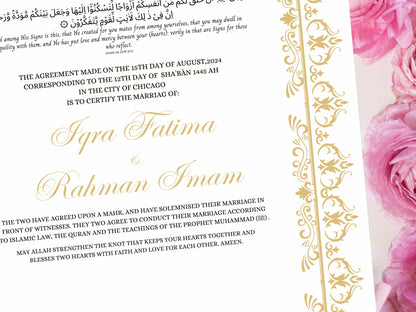 خَلَقَ لَكُم مِّنْ أَنفُسِكُمْ أَزْوَاجًا لِّتَسْكُنُوا إِلَيْهَا وَجَعَلَ بَيْنَكُم مَّوَدَّةً
إِنَّ فِي ذَٰلِكَ لَآيَاتٍ لِّقَوْمٍ يَتَفَكَّرُونَ
d among His Signs is this, that He created for you mates from among yourselves, that you may dwell in
quility with them, and He has put love and mercy between your (hearts): verily in that are Signs for those
who reflect.
THE AGREEMENT MADE ON THE 15TH DAY OF AUGUST,2024
CORRESPONDING TO THE 12TH DAY OF SHA'BĀN 1445 AH
IN THE CITY OF CHICAGO
IS TO CERTIFY THE MARRIAG OF:
Iqra Fatima
&
Rahman Imam
THE TWO HAVE AGREED UPON A MAHR, AND HAVE SOLEMNISED THEIR MARRIAGE IN
FRONT OF WITNESSES. THEY TWO AGREE TO CONDUCT THEIR MARRIAGE ACCORDING
TO ISLAMIC LAW, THE QURAN AND THE TEACHINGS OF THE PROPHET MUHAMMAD (ﷺ) .
MAY ALLAH STRENGTHEN THE KNOT THAT KEEPS YOUR HEARTS TOGETHER AND
BLESSES TWO HEARTS WITH FAITH AND LOVE FOR EACH OTHER. AMEEN.